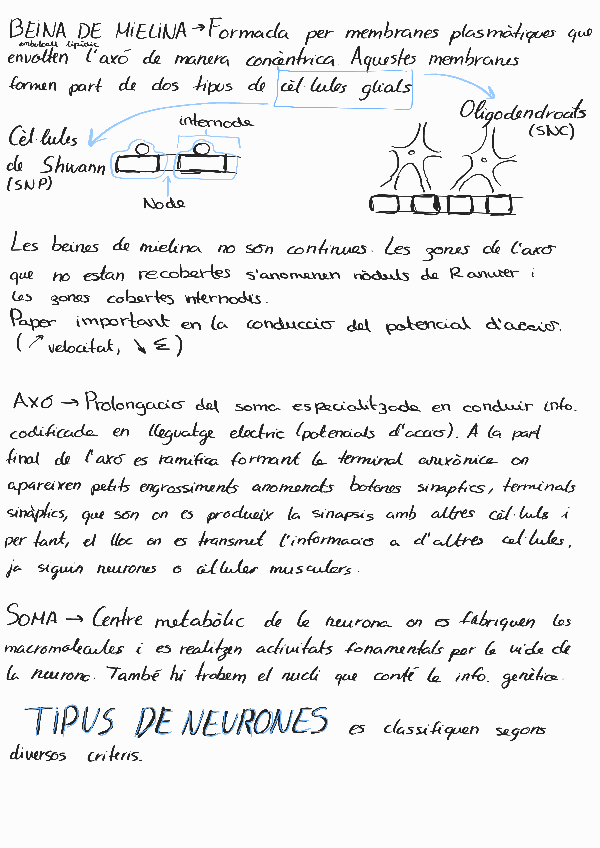 BEINA DE MIELINA → Formada per membranes plasmàtiques que
embolcall lipídic
envolten l'axó de manera concèntrica. Aquestes membranes
formen part de dos tipus de cèl·lules glials
Oligodendroats
(SNC)
internode
Cèl·lules
de Shwann
(SNP)
Node
Les beines de mielina no són continues. Les zones de l'axó
que no estan recobertes s'anomenen nòduls de Ranvier i
les zones cobertes internodis.
Paper important en la conducció del potencial d'acció.
(↗ velocitat, ↘ E)
AXÓ → Prolongació del soma especialitzada en conduir info.
codificada en lleguatge elèctric (potencials d'acció). A la part
final de l'axó es ramifica formant la terminal axònica on
apareixen petits engrossiments anomenats botons sinàptics, terminals
sinàptics, que són on es produeix la sinapsis amb altres cèl·luls i
per tant, el lloc on es transmet l'informació a d'altres cel·lules,
ja siguin neurones o cèl·lules musculars.
SOMA → Centre metabòlic de la neurona on es fabriquen les
macromolècules i es realitzen activitats fonamentals per la vida de
la neurona. També hi trobem el nucli que conté la info. genètica.
TIPUS DE NEURONES es classifiquen segons
diversos criteris.